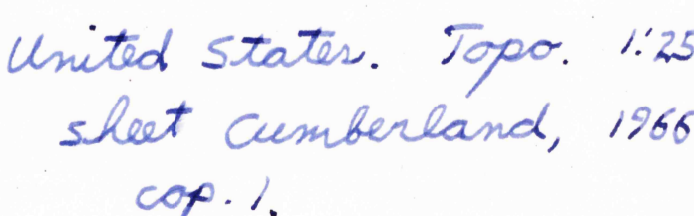 United States. Topo. 1:25
sheet Cumberland, 1966
cop. 1.